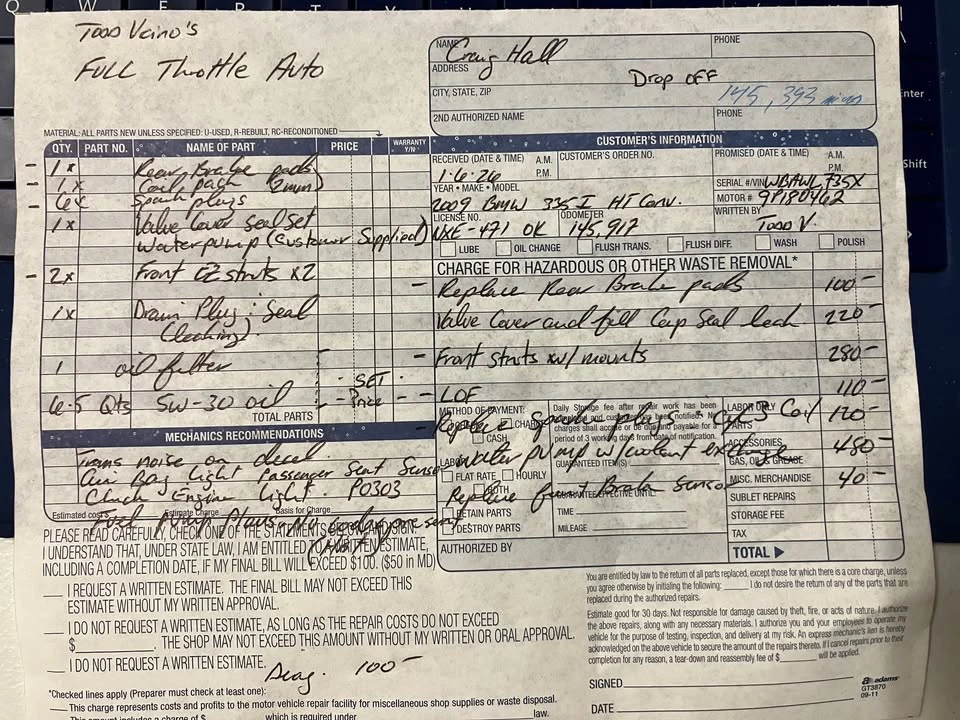 Todd Vcino's
Full Throttle Auto
NAME Craig Hall
PHONE
ADDRESS
Drop off
CITY, STATE, ZIP
145,393
2ND AUTHORIZED NAME
PHONE
MATERIAL: ALL PARTS NEW UNLESS SPECIFIED: U-USED, R-REBUILT, RC-RECONDITIONED
QTY. PART NO. NAME OF PART PRICE WARRANTY Y/N
- 1x Rear Brake pads
- 1x Coil pack 2mm)
- 6x Spark plugs
1x Valve Cover Seal Set
Water pump (Customer Supplied)
- 2x Front EZ struts x2
1x Drain Plug : Seal
(leaking)
1 oil filter
- SET -
6.5 Qts 5W-30 oil - Price - -
TOTAL PARTS
MECHANICS RECOMMENDATIONS
Trans noise on decel
Air Bag Light Passenger Seat Sensor
Check Engine Light. P0303
Estimated costs: Estimate Charge Basis for Charge
Fuel pump No codes present
CUSTOMER'S INFORMATION
RECEIVED (DATE & TIME) A.M. P.M.
1-6-26
CUSTOMER'S ORDER NO.
PROMISED (DATE & TIME) A.M. P.M.
YEAR • MAKE • MODEL
2009 BMW 335I HT Conv.
SERIAL #/VIN WBAWL735X
MOTOR # 9P180462
LICENSE NO. NXE-471 OK
ODOMETER 145,917
WRITTEN BY Todd V.
LUBE OIL CHANGE FLUSH TRANS. FLUSH DIFF. WASH POLISH
CHARGE FOR HAZARDOUS OR OTHER WASTE REMOVAL*
- Replace Rear Brake pads 100-
Valve Cover and fill Cap Seal leak 220-
- Front struts w/mounts 280-
- LOF 110-
Replace Spark plugs - Cyl 3 Coil 120-
water pump w/coolant exchange 450-
Replace front Brake Sensor 40-
METHOD OF PAYMENT:
CHARGE
CASH
Daily Storage fee after repair work has been completed and customer has been notified. No charges shall accrue or be due and payable for a period of 3 working days from date of notification.
LABOR ONLY
PARTS
ACCESSORIES
GAS, OIL & GREASE
MISC. MERCHANDISE
SUBLET REPAIRS
STORAGE FEE
TAX
TOTAL ▶
FLAT RATE HOURLY
BOTH
GUARANTEED ITEM(S)
GUARANTEE EFFECTIVE UNTIL:
RETAIN PARTS
TIME
DESTROY PARTS
MILEAGE
AUTHORIZED BY
PLEASE READ CAREFULLY, CHECK ONE OF THE STATEMENTS BELOW, AND SIGN:
I UNDERSTAND THAT, UNDER STATE LAW, I AM ENTITLED TO A WRITTEN ESTIMATE,
INCLUDING A COMPLETION DATE, IF MY FINAL BILL WILL EXCEED $100. ($50 in MD)
I REQUEST A WRITTEN ESTIMATE. THE FINAL BILL MAY NOT EXCEED THIS
ESTIMATE WITHOUT MY WRITTEN APPROVAL.
I DO NOT REQUEST A WRITTEN ESTIMATE, AS LONG AS THE REPAIR COSTS DO NOT EXCEED
$ THE SHOP MAY NOT EXCEED THIS AMOUNT WITHOUT MY WRITTEN OR ORAL APPROVAL.
I DO NOT REQUEST A WRITTEN ESTIMATE.
Diag. 100-
*Checked lines apply (Preparer must check at least one):
This charge represents costs and profits to the motor vehicle repair facility for miscellaneous shop supplies or waste disposal.
This amount includes a charge of $ which is required under law.
You are entitled by law to the return of all parts replaced, except those for which there is a core charge, unless
you agree otherwise by initialing the following: I do not desire the return of any of the parts that are
replaced during the authorized repairs.
Estimate good for 30 days. Not responsible for damage caused by theft, fire, or acts of nature. I authorize
the above repairs, along with any necessary materials. I authorize you and your employees to operate my
vehicle for the purpose of testing, inspection, and delivery at my risk. An express mechanic's lien is hereby
acknowledged on the above vehicle to secure the amount of the repairs thereto. If I cancel repairs prior to their
completion for any reason, a tear-down and reassembly fee of $ will be applied.
SIGNED
DATE
adams
GT3870
09-11